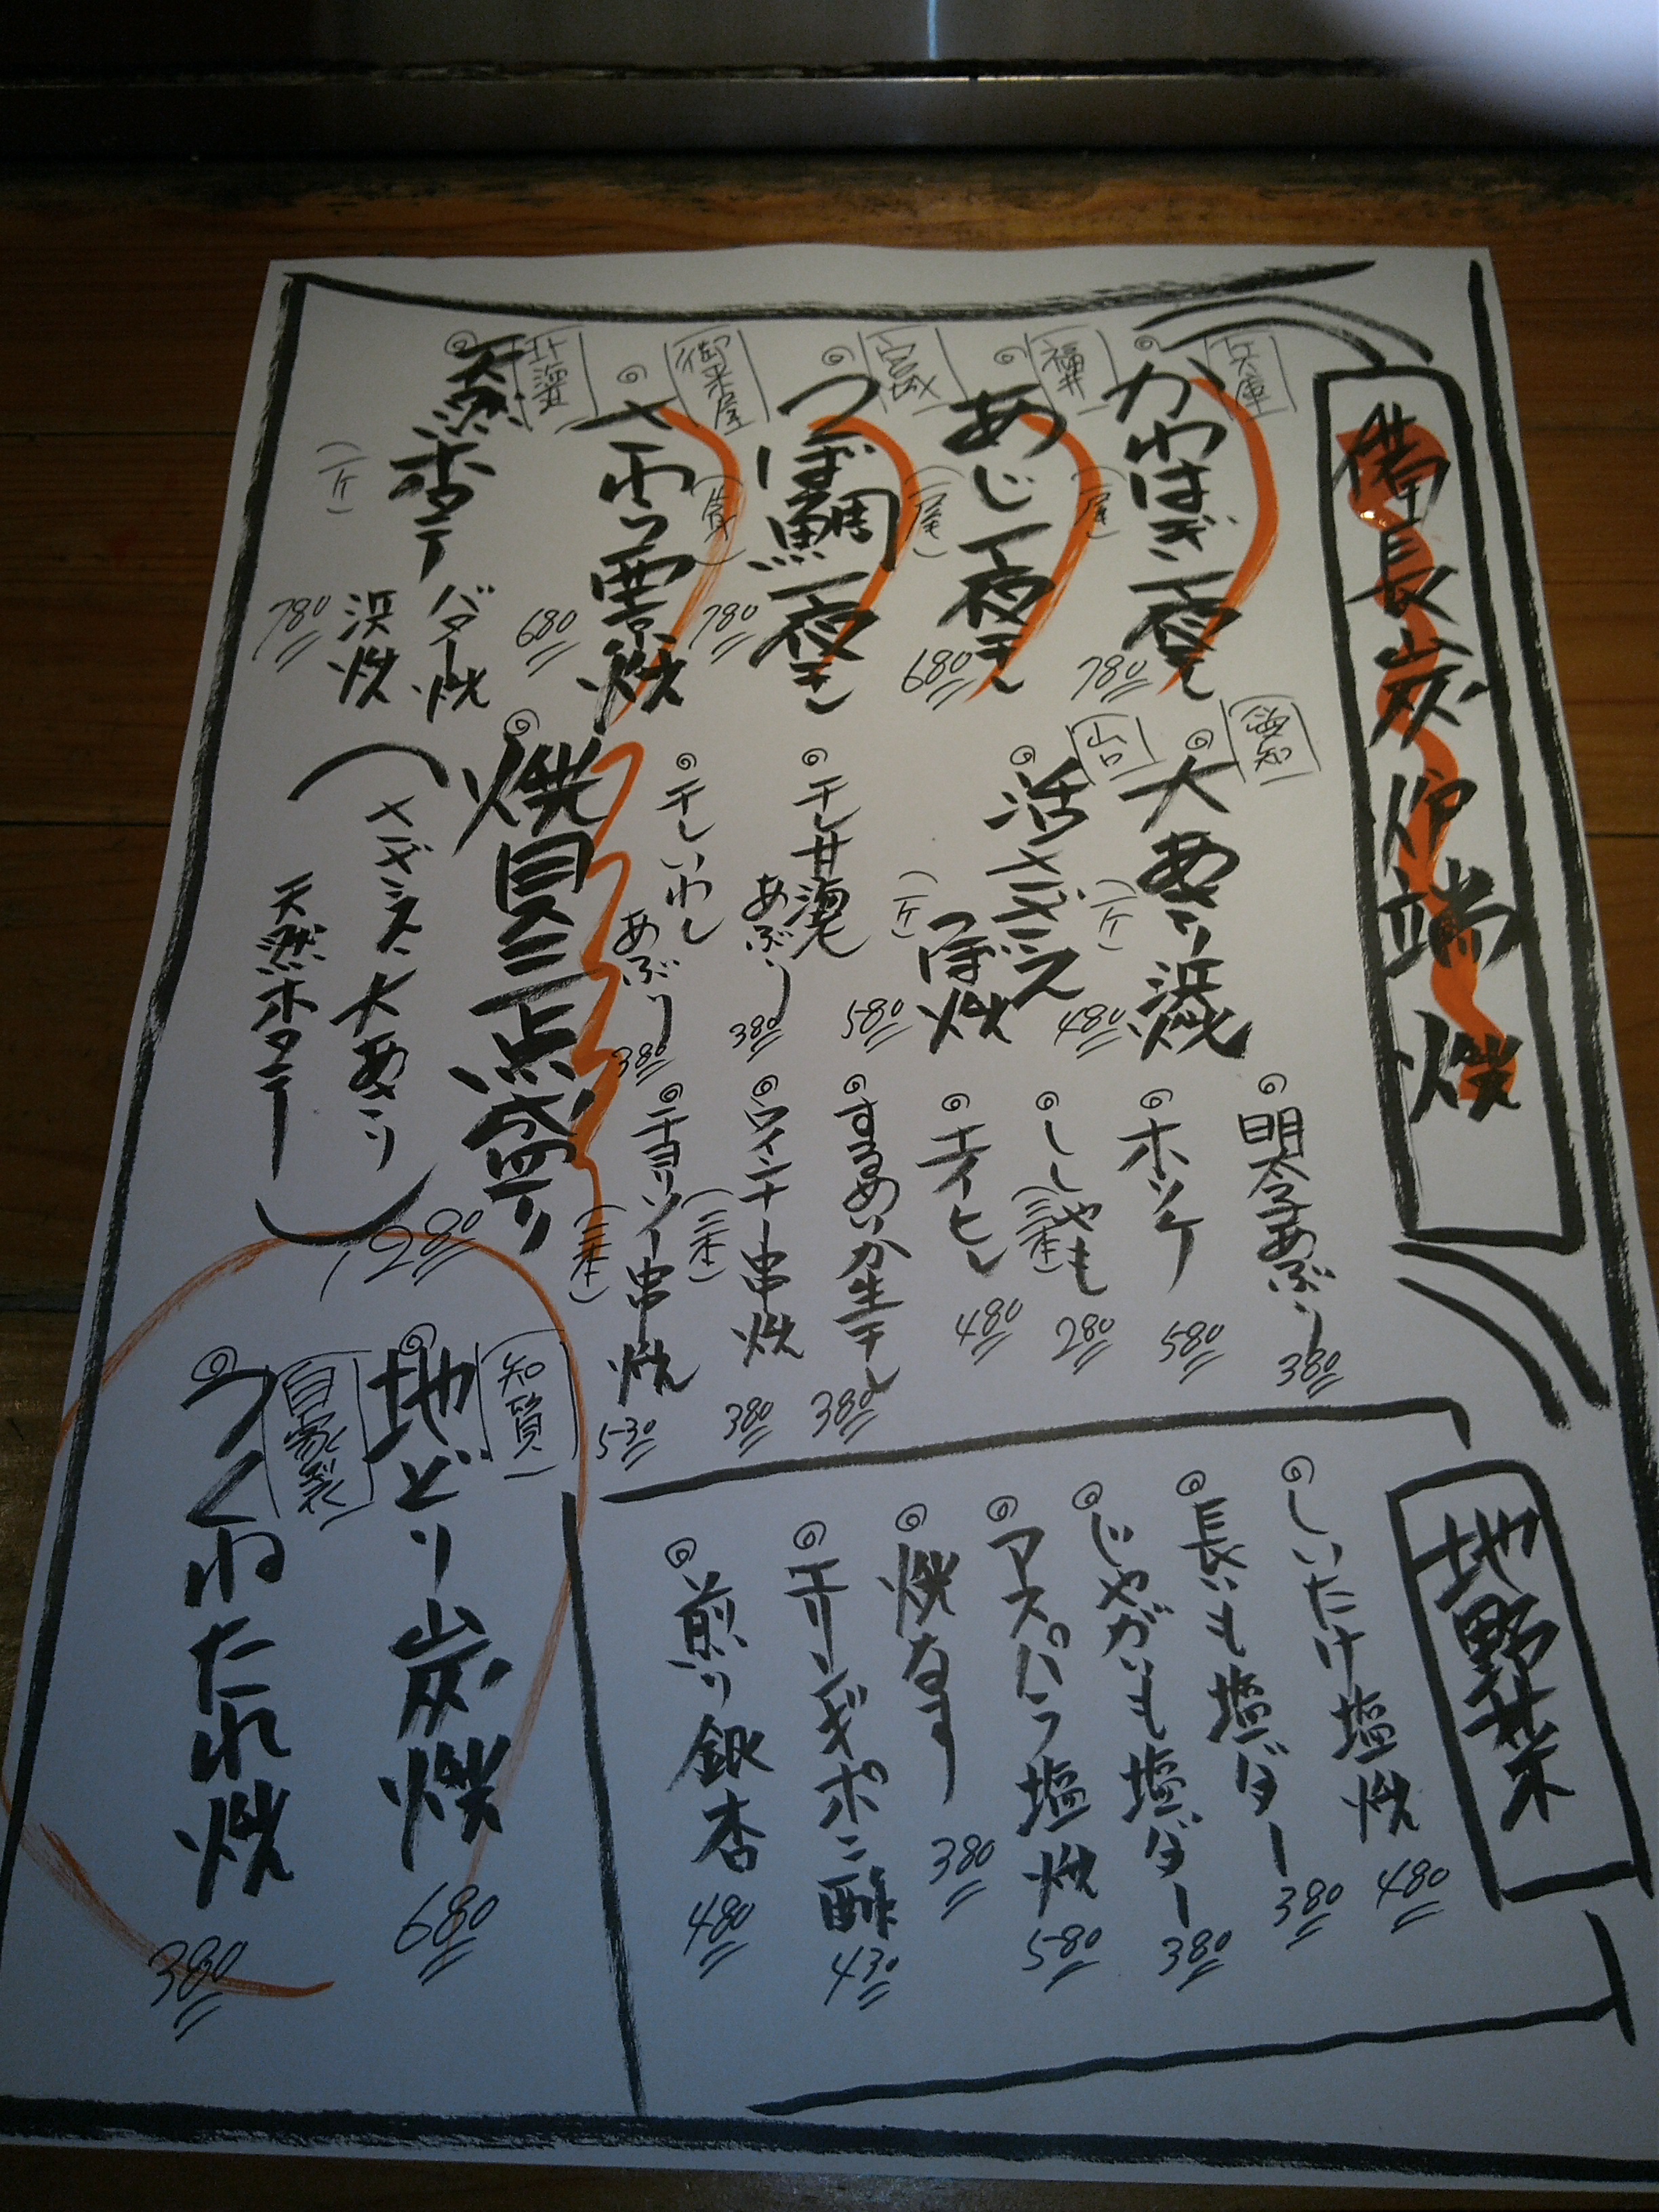 備長炭炉端焼
兵庫
かわはぎ一夜干し
780
福井
あじ一夜干し
(一尾)
680
宮城
つぼ鯛一夜干し
(一尾)
780
さわら西京焼
680
北海道
天然ホタテ
(一ケ)
バター焼
浜焼
780
愛知
大あさり浜焼
(一ケ)
480
山口
活サザエ
つぼ焼
(一ケ)
580
干し甘海老
あぶり
380
干しいわし
あぶり
380
焼貝三点盛り
(サザエ、大あさり
天然ホタテ)
1,280
明太子あぶり
380
ホッケ
580
ししゃも
(三本)
280
エイヒレ
480
するめいか生干し
380
ウインナー串焼
(二本)
380
チョリソー串焼
(二本)
530
地野菜
しいたけ塩焼
480
長いも塩バター
380
じゃがいも塩バター
380
アスパラ塩焼
580
焼なす
380
エリンギポン酢
430
煎り銀杏
480
地どり炭焼
680
自家製
つくねたれ焼
380